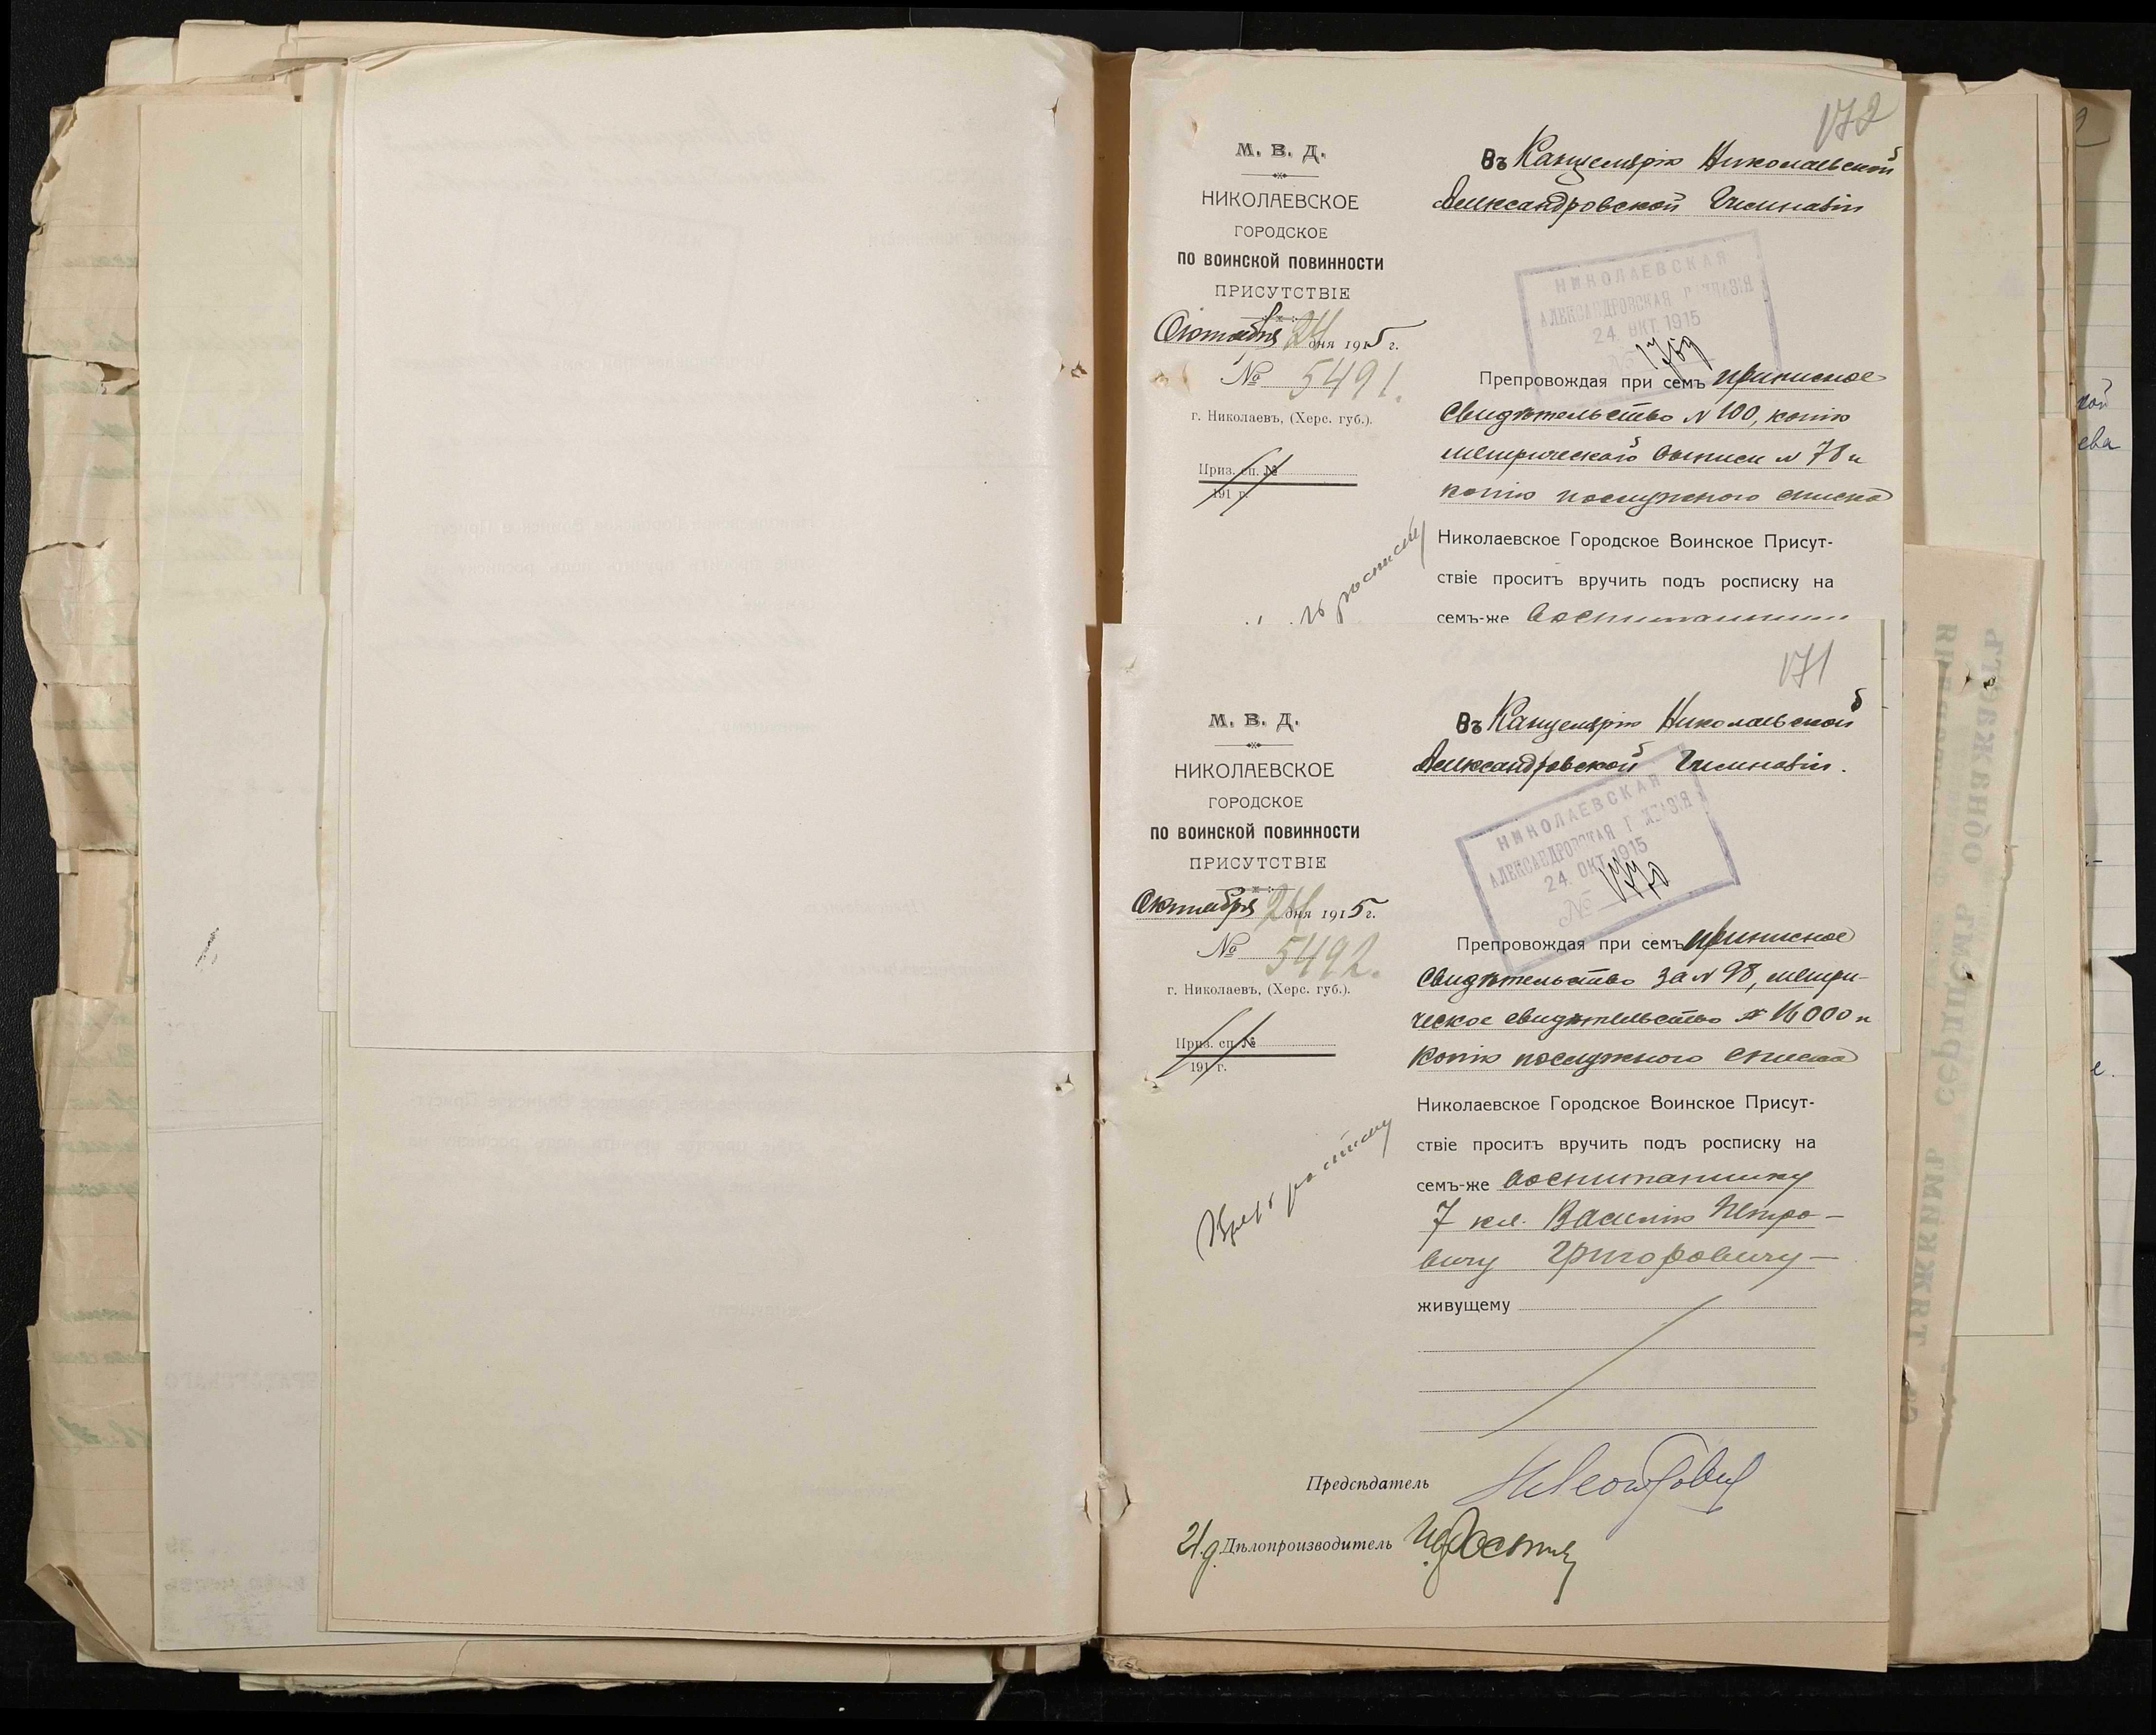 172
М. В. Д.
НИКОЛАЕВСКОЕ
ГОРОДСКОЕ
ПО ВОИНСКОЙ ПОВИННОСТИ
ПРИСУТСТВІЕ
Октября 24 дня 1915 г.
№ 5491.
г. Николаевъ, (Херс. губ.).
Приз. сп. №
191 г.
Въ Канцелярію Николаевской
Александровской Гимназіи
НИКОЛАЕВСКАЯ
АЛЕКСАНДРОВСКАЯ ГИМНАЗІЯ
24. ОКТ. 1915
№ 1769
Препровождая при семъ приписное
свидѣтельство № 100, копію
метрической выписи № 78 и
копію послужного списка
Николаевское Городское Воинское Присут-
ствіе проситъ вручить подъ росписку на
семъ-же воспитаннику
росписку
171
М. В. Д.
НИКОЛАЕВСКОЕ
ГОРОДСКОЕ
ПО ВОИНСКОЙ ПОВИННОСТИ
ПРИСУТСТВІЕ
Октября 24 дня 1915 г.
№ 5492.
г. Николаевъ, (Херс. губ.).
Приз. сп. №
191 г.
Въ Канцелярію Николаевской
Александровской Гимназіи.
НИКОЛАЕВСКАЯ
АЛЕКСАНДРОВСКАЯ ГИМНАЗІЯ
24. ОКТ. 1915
№ 1770
Препровождая при семъ приписное
свидѣтельство за № 98, метри-
ческое свидѣтельство № 16000 и
копію послужного списка
Николаевское Городское Воинское Присут-
ствіе проситъ вручить подъ росписку на
семъ-же воспитаннику
7 кл. Василію Петро-
вичу Григоровичу
живущему
росписку
Предсѣдатель
И.д. Дѣлопроизводитель